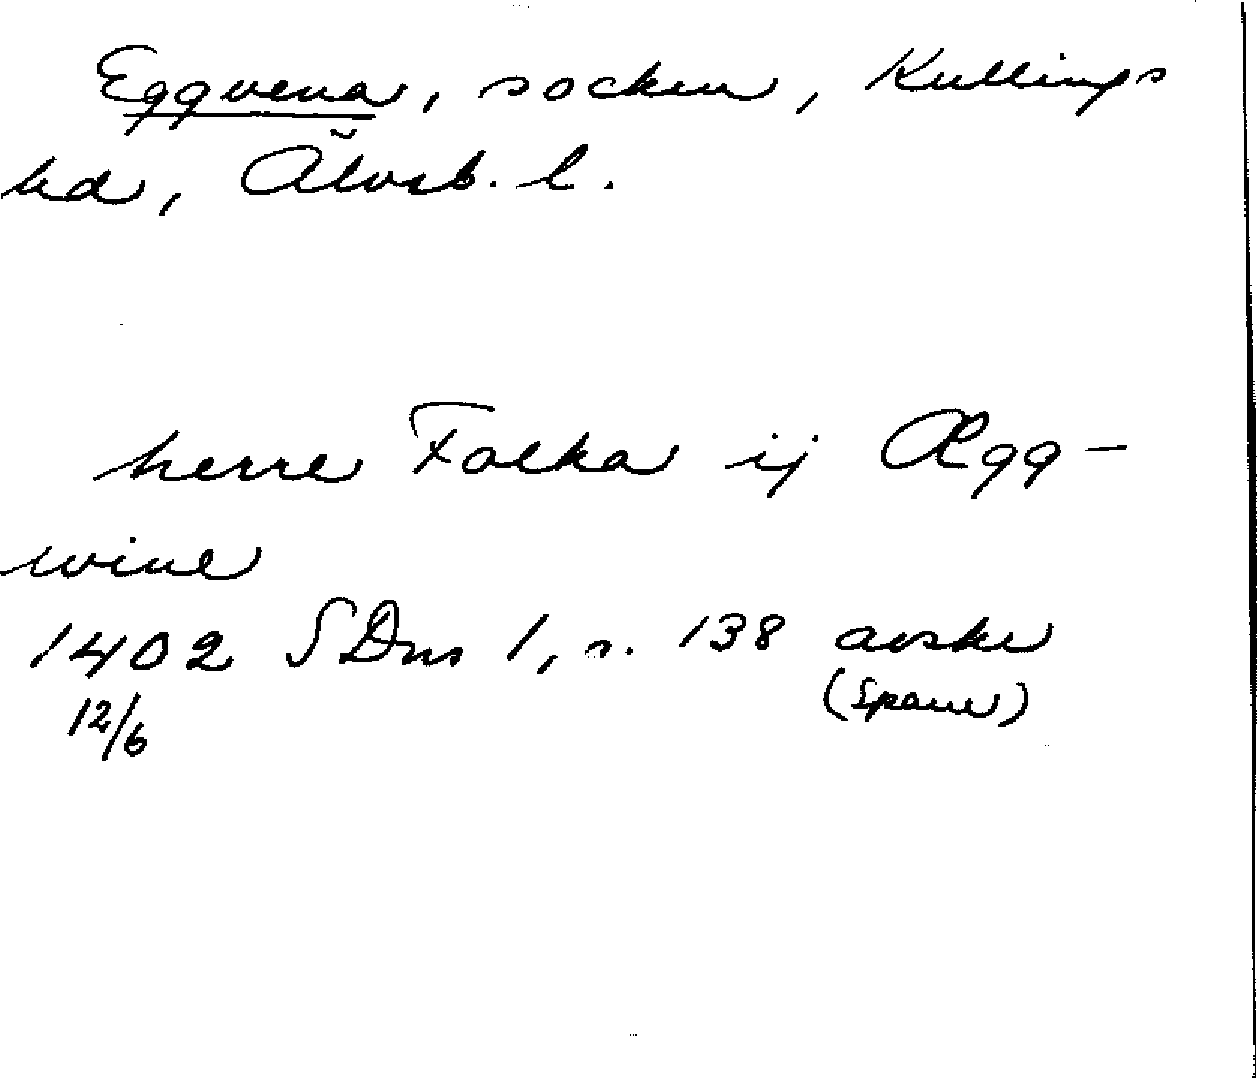 Eggvena, socken, Kullings
hd, Älvsb. l.
herre Falka ij Ægg-
wine
1402 SDns 1, s. 138 avskr
12/6 (Spanu)